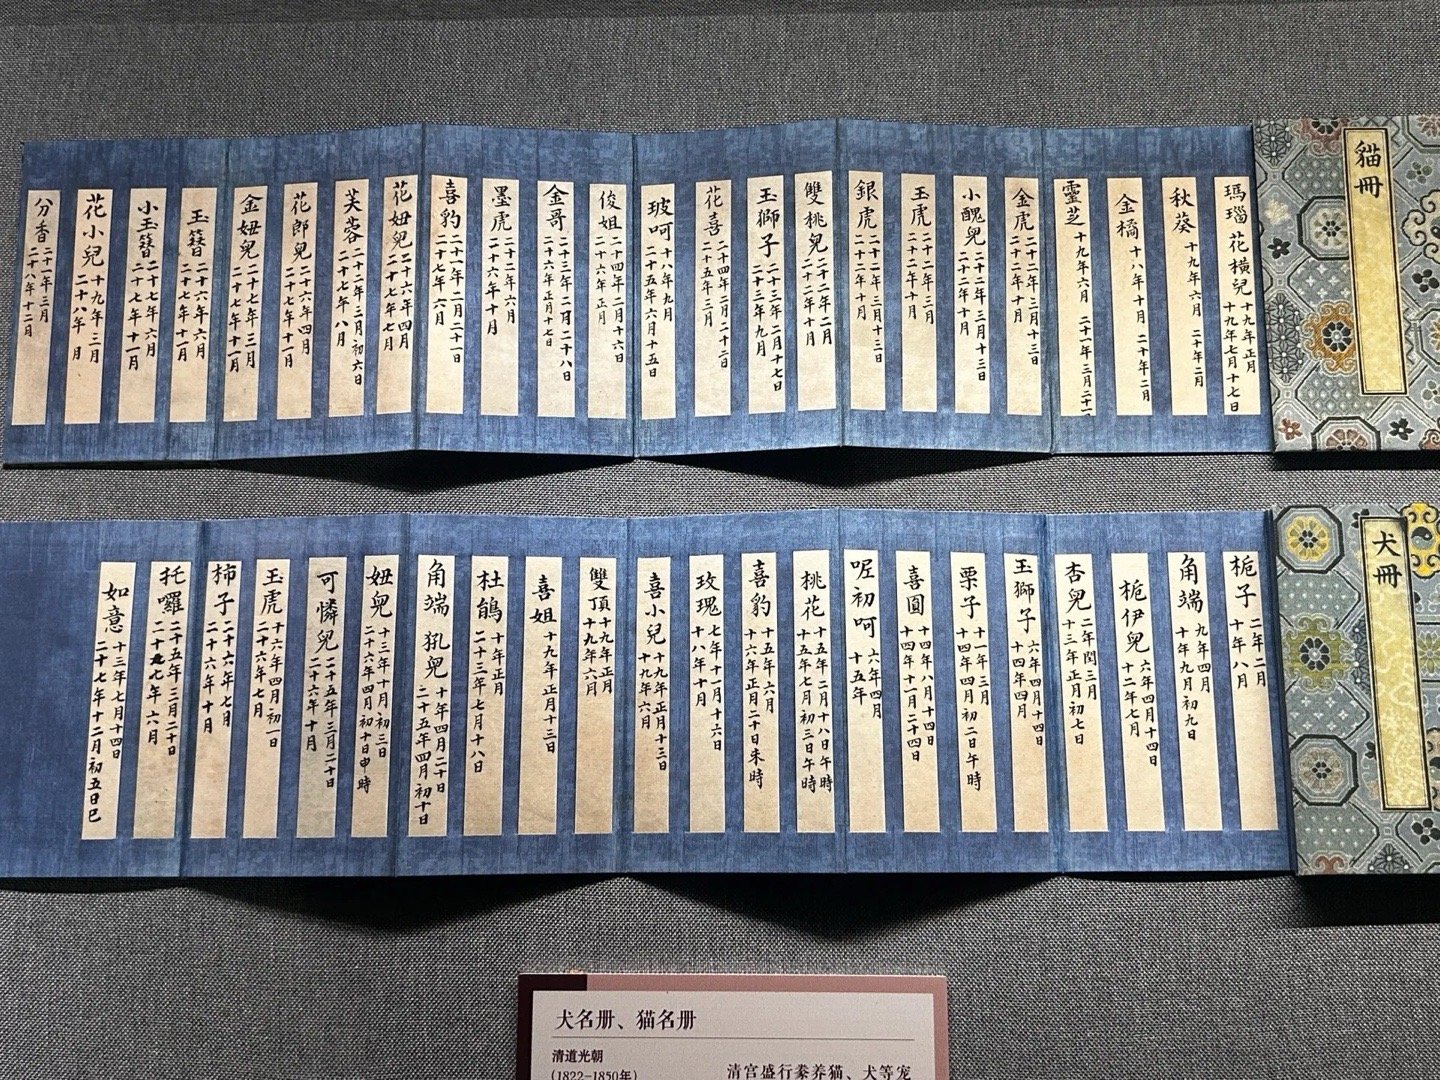 貓冊
瑪瑙 花橫兒
十九年正月
十九年七月十七日
秋葵
十九年六月 二十年二月
金橘
十八年十月 二十年二月
靈芝
十九年六月 二十一年三月二十一
金虎
二十二年三月十三日
二十二年十月
小醜兒
二十二年三月十三日
二十二年十月
玉虎
二十二年三月
二十二年十月
銀虎
二十二年三月十三日
二十二年十月
雙桃兒
二十二年二月
二十二年十月
玉獅子
二十三年二月十七日
二十三年九月
花喜
二十四年二月二十二日
二十五年三月
玻呵
十八年九月
二十五年六月十五日
俊姐
二十四年二月十六日
二十六年正月
金哥
二十三年二月二十八日
二十六年正月十七日
墨虎
二十二年六月
二十六年十月
喜豹
二十一年二月二十一日
二十七年六月
花妞兒
二十六年四月
二十七年七月
芙蓉
二十二年三月初六日
二十七年八月
花郎兒
二十六年四月
二十七年十一月
金妞兒
二十七年三月
二十七年十一月
玉簪
二十六年六月
二十七年十一月
小玉簪
二十七年六月
二十七年十一月
花小兒
十九年三月
二十八年 月
分香
二十一年三月
二十八年十二月
犬冊
梔子
二年二月
十年八月
角端
九年四月
十年九月初九日
梔伊兒
六年四月十四日
十二年七月
杏兒
二年閏三月
十三年正月初七日
玉獅子
六年四月十四日
十四年四月
栗子
十一年三月
十四年四月初二日午時
喜圓
十四年八月十四日
十四年十一月二十四日
喔初呵
六年四月
十五年
桃花
十五年二月十八日午時
十五年七月初三日午時
喜豹
十五年六月
十六年正月二十日未時
玫瑰
七年十一月十六日
十八年十月
喜小兒
十九年正月十三日
十九年六月
雙頂
十九年正月
十九年六月
喜姐
十九年正月十三日
杜鵑
十年正月
二十三年七月十八日
角端 犼兒
十年四月二十日
二十五年四月初十日
妞兒
十三年十月初三日
二十六年四月初十日申時
可憐兒
二十五年三月二十日
二十六年十月
玉虎
十六年四月初一日
二十六年七月
柿子
二十六年七月
二十六年十月
托囉
二十五年三月二十日
二十七年六月
如意
十三年七月十四日
二十七年十二月初五日巳
犬名册、猫名册
清道光朝
(1822–1850年)
清宫盛行豢养猫、犬等宠